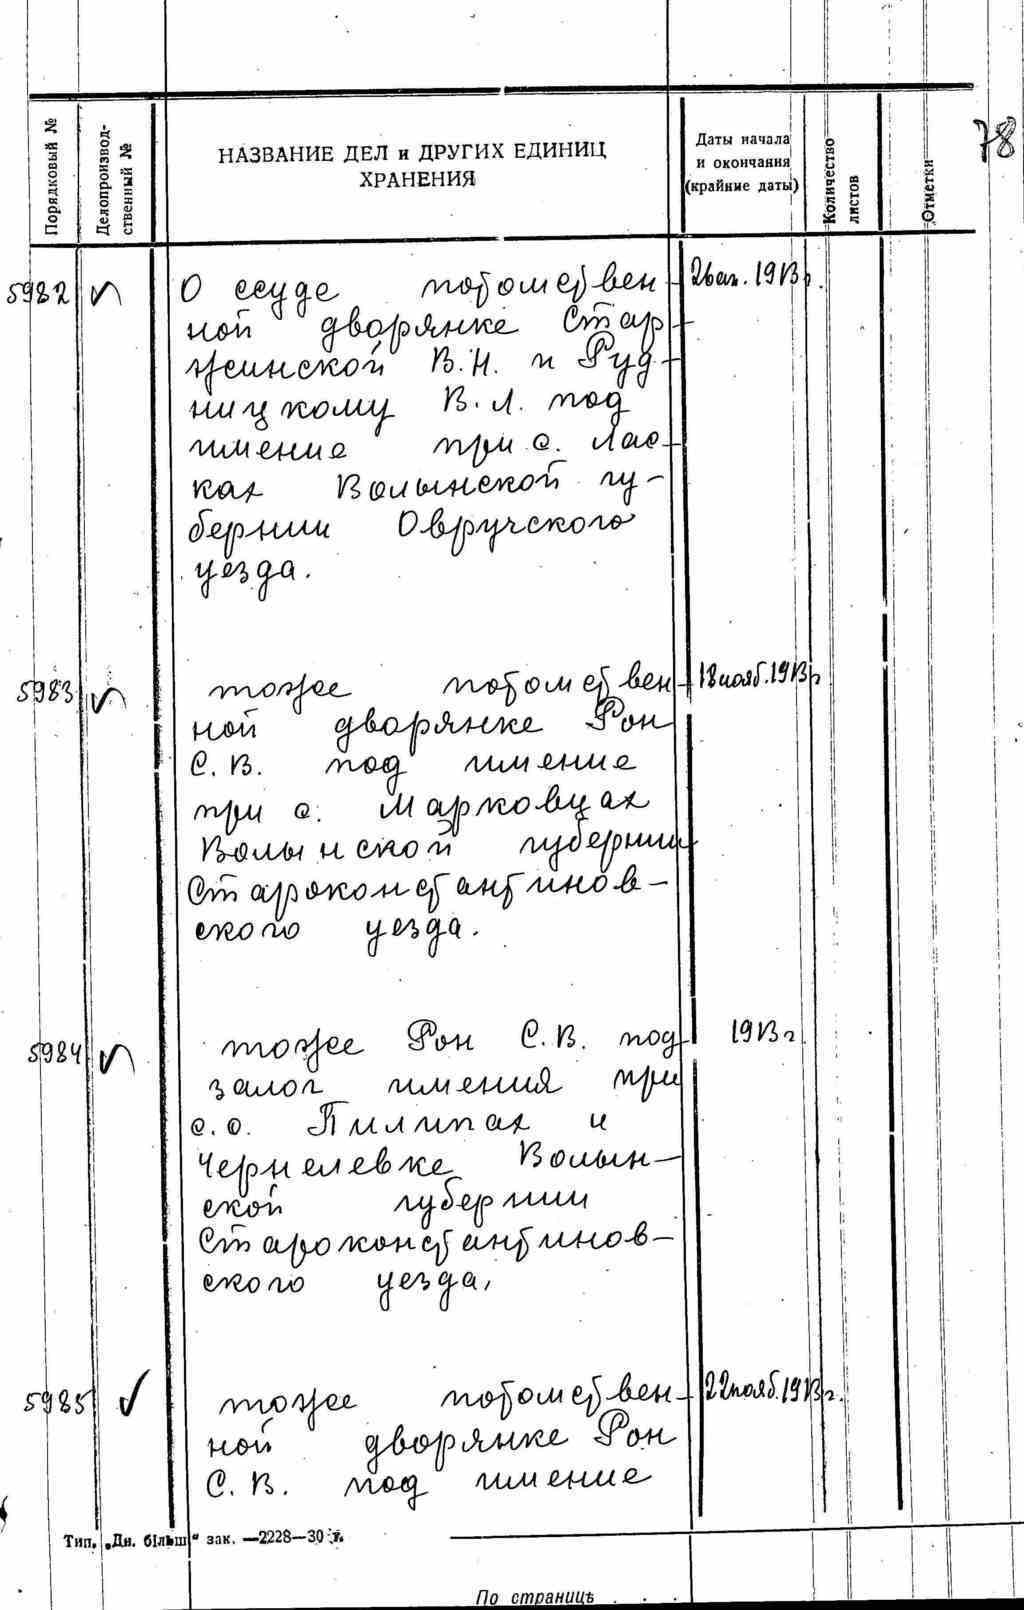 78
Порядковый №
Делопроизвод-
ственный №
НАЗВАНИЕ ДЕЛ и ДРУГИХ ЕДИНИЦ
ХРАНЕНИЯ
Даты начала
и окончания
(крайние даты)
Количество
листов
Отметки
5982 О ссуде потомствен- 26 ап. 1913 г.
ной дворянке Стар-
жинской В.Н. и Руд-
ницкому В.Л. под
имение при с. Лас-
ках Волынской гу-
бернии Овручского
уезда.
5983 тоже потомствен- 18 нояб. 1913 г
ной дворянке Рон
С.В. под имение
при с. Марковцах
Волынской губернии
Староконстантинов-
ского уезда.
5984 тоже Рон С.В. под 1913 г
залог имения при
с.с. Пилипах и
Чернелевке Волын-
ской губернии
Староконстантинов-
ского уезда,
5985 тоже потомствен- 22 нояб. 1913 г.
ной дворянке Рон
С.В. под имение
Тип. „Дн. більш“ зак. —2228—30 г.
По странице